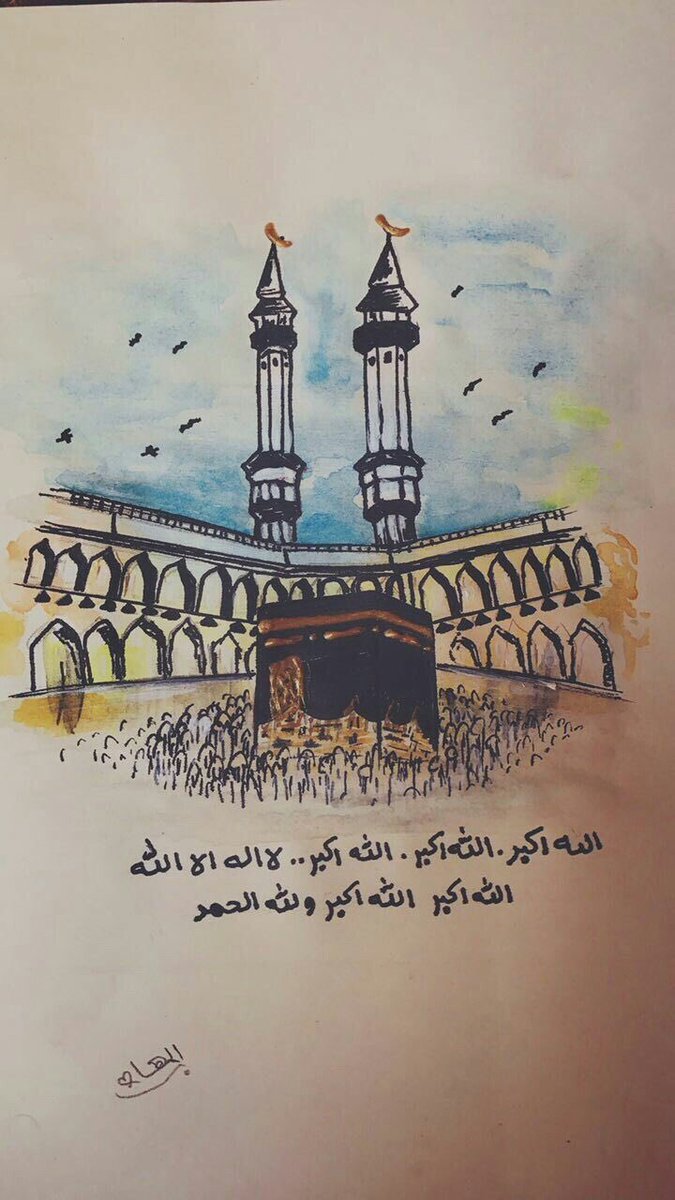 الله اكبر . الله اكبر . الله اكبر .. لا اله الا الله
الله اكبر الله اكبر ولله الحمد